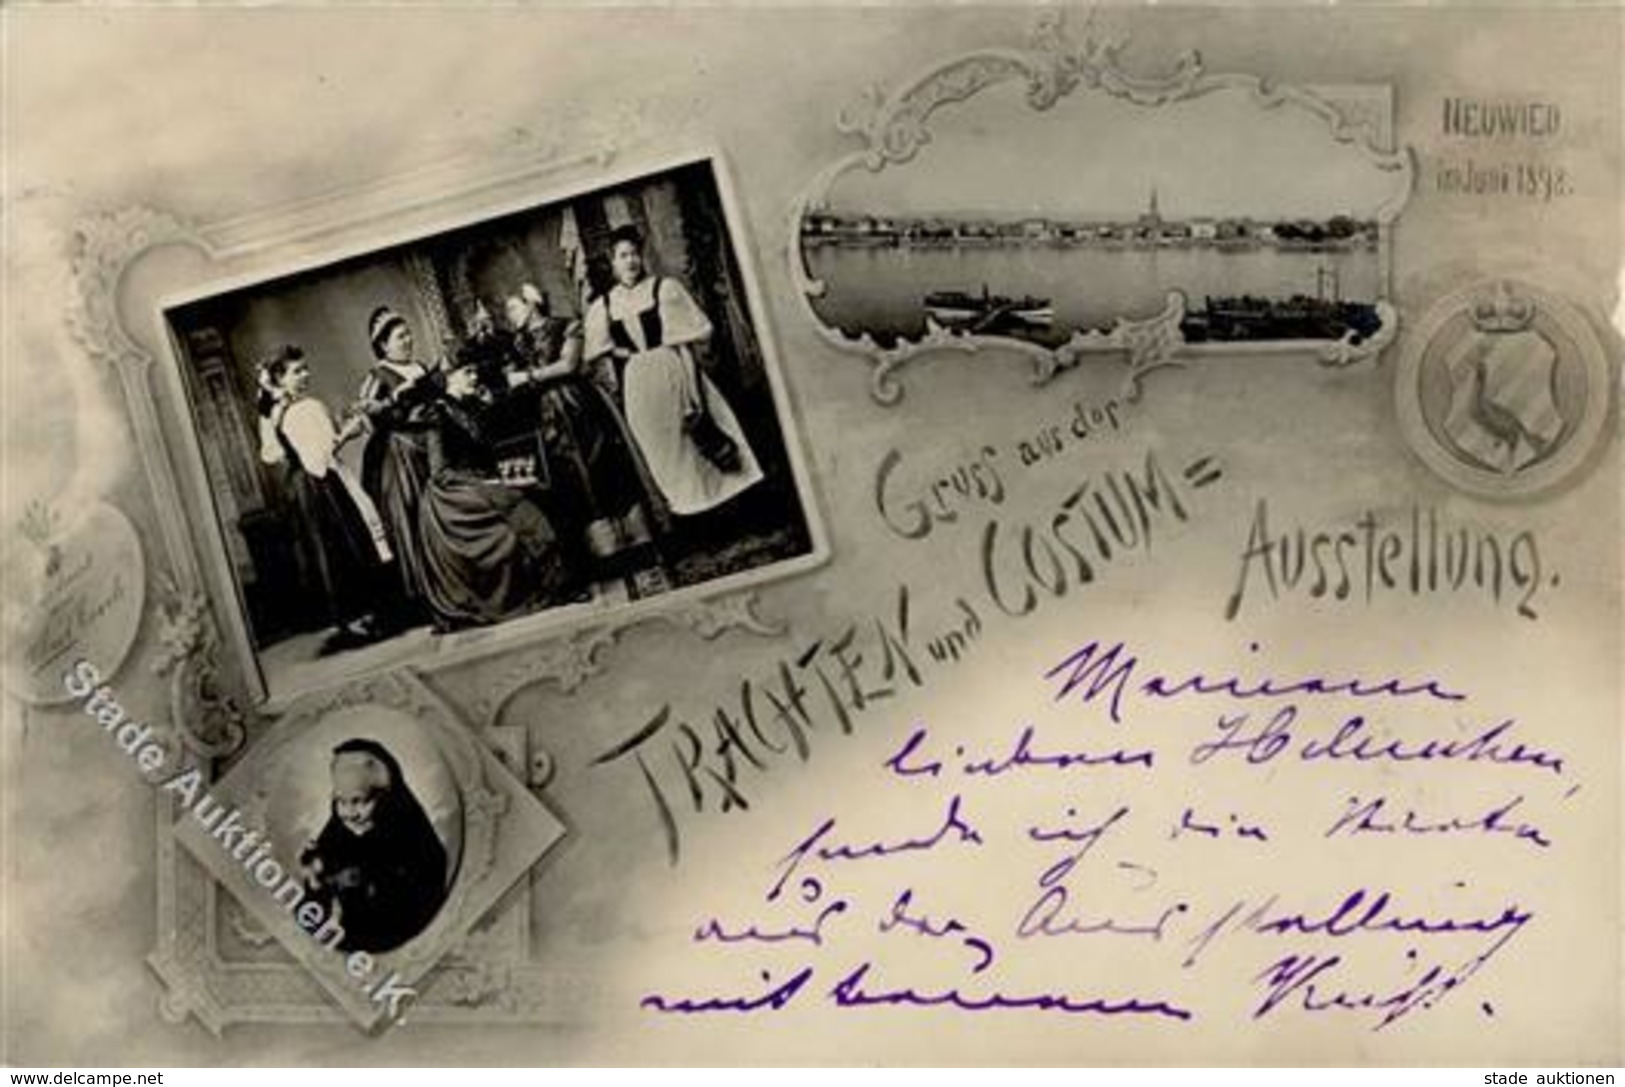 NEUWIED
im Juni 1898.
Gruss aus der
TRACHTEN und COSTUM=
Ausstellung.
Meinem
lieben Helmchen,
sende ich die Karte
aus der Ausstellung
mit treuem Kuß.
Stade Auktionen e.K.
www.delcampe.net
stade auktionen